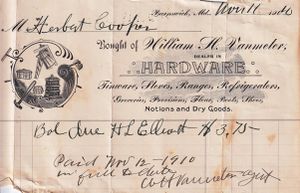 Brunswick, Md. Nov 11 1910
M Herbert Cooper
Bought of William H. Vanmeter,
DEALER IN
HARDWARE,
Tinware, Stoves, Ranges, Refrigerators,
Groceries, Provisions, Flour, Boots, Shoes,
Notions and Dry Goods.
Bal Due H L Elliott $ 3.75
Paid Nov 12 - 1910
in full to date
W H Vanmeter